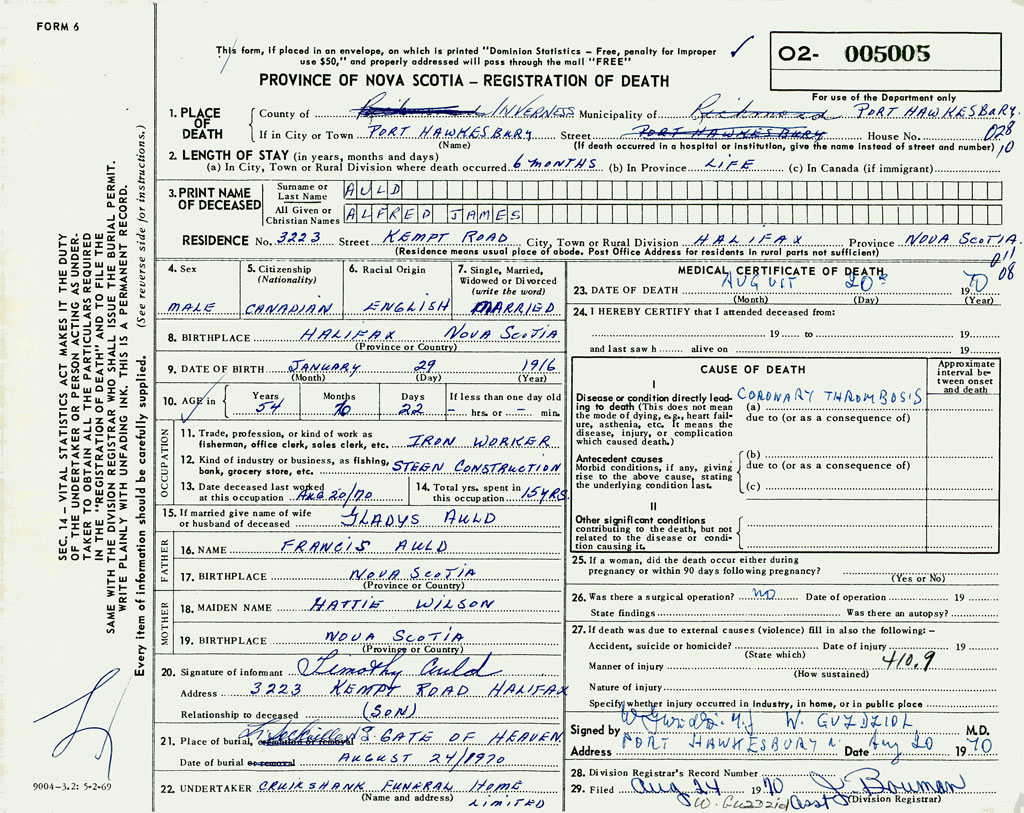 FORM 6
This form, if placed in an envelope, on which is printed "Dominion Statistics – Free, penalty for improper
use $50," and properly addressed will pass through the mail "FREE"
PROVINCE OF NOVA SCOTIA – REGISTRATION OF DEATH
02- 005005
For use of the Department only
1. PLACE OF DEATH
County of Richmond INVERNESS Municipality of Richmond PORT HAWKESBURY.
If in City or Town PORT HAWKESBURY Street PORT HAWKESBURY House No. 028
(Name) (If death occurred in a hospital or institution, give the name instead of street and number) 10
2. LENGTH OF STAY (in years, months and days)
(a) In City, Town or Rural Division where death occurred 6 MONTHS (b) In Province LIFE (c) In Canada (if immigrant)
3. PRINT NAME OF DECEASED
Surname or Last Name AULD
All Given or Christian Names ALFRED JAMES
RESIDENCE No. 3223 Street KEMPT ROAD City, Town or Rural Division HALIFAX Province NOVA SCOTIA.
(Residence means usual place of abode. Post Office Address for residents in rural parts not sufficient) 011
08
4. Sex
MALE
5. Citizenship
(Nationality)
CANADIAN
6. Racial Origin
ENGLISH
7. Single, Married,
Widowed or Divorced
(write the word)
MARRIED
8. BIRTHPLACE HALIFAX NOVA SCOTIA
(Province or Country)
9. DATE OF BIRTH JANUARY 29 1916
(Month) (Day) (Year)
10. AGE in
Years Months Days If less than one day old
54 22 – hrs. or – min.
OCCUPATION
11. Trade, profession, or kind of work as
fisherman, office clerk, sales clerk, etc. IRON WORKER
12. Kind of industry or business, as fishing,
bank, grocery store, etc. STEEN CONSTRUCTION
13. Date deceased last worked
at this occupation AUG 20/70
14. Total yrs. spent in
this occupation 15 YRS.
15. If married give name of wife
or husband of deceased GLADYS AULD
FATHER
16. NAME FRANCIS AULD
17. BIRTHPLACE NOVA SCOTIA
(Province or Country)
MOTHER
18. MAIDEN NAME HATTIE WILSON
19. BIRTHPLACE NOVA SCOTIA
(Province or Country)
20. Signature of informant Timothy Auld
Address 3223 KEMPT ROAD HALIFAX
Relationship to deceased (SON)
21. Place of burial, cremation or removal GATE OF HEAVEN
Date of burial or removal AUGUST 24/1970
22. UNDERTAKER CRUIKSHANK FUNERAL HOME
(Name and address) LIMITED
MEDICAL CERTIFICATE OF DEATH
23. DATE OF DEATH AUGUST 20th 1970
(Month) (Day) (Year)
24. I HEREBY CERTIFY that I attended deceased from:
19 to 19
and last saw h alive on 19
CAUSE OF DEATH
Approximate
interval be-
tween onset
and death
I
Disease or condition directly lead-
ing to death (This does not mean
the mode of dying, e.g., heart fail-
ure, asthenia, etc. It means the
disease, injury, or complication
which caused death.)
CORONARY THROMBOSIS
(a)
due to (or as a consequence of)
Antecedent causes
Morbid conditions, if any, giving
rise to the above cause, stating
the underlying condition last.
(b)
due to (or as a consequence of)
(c)
II
Other significant conditions
contributing to the death, but not
related to the disease or condi-
tion causing it.
25. If a woman, did the death occur either during
pregnancy or within 90 days following pregnancy?
(Yes or No)
26. Was there a surgical operation? NO Date of operation 19
State findings Was there an autopsy?
27. If death was due to external causes (violence) fill in also the following: –
Accident, suicide or homicide? Date of injury 19
(State which)
Manner of injury 410.9
(How sustained)
Nature of injury
Specify whether injury occurred in Industry, in home, or in public place
Signed by W. GUZDZIOL M.D.
Address PORT HAWKESBURY Date Aug 20 1970
28. Division Registrar's Record Number
29. Filed Aug 24 1970 J. Bowman
W. Guzdziol Asst (Division Registrar)
SEC. 14 – VITAL STATISTICS ACT MAKES IT THE DUTY
OF THE UNDERTAKER OR PERSON ACTING AS UNDER-
TAKER TO OBTAIN ALL THE PARTICULARS REQUIRED
IN THE "REGISTRATION OF DEATH" AND TO FILE THE
SAME WITH THE DIVISION REGISTRAR WHO SHALL ISSUE THE BURIAL PERMIT.
WRITE PLAINLY WITH UNFADING INK. THIS IS A PERMANENT RECORD.
Every item of information should be carefully supplied. (See reverse side for instructions.)
9004-3.2: 5-2-69